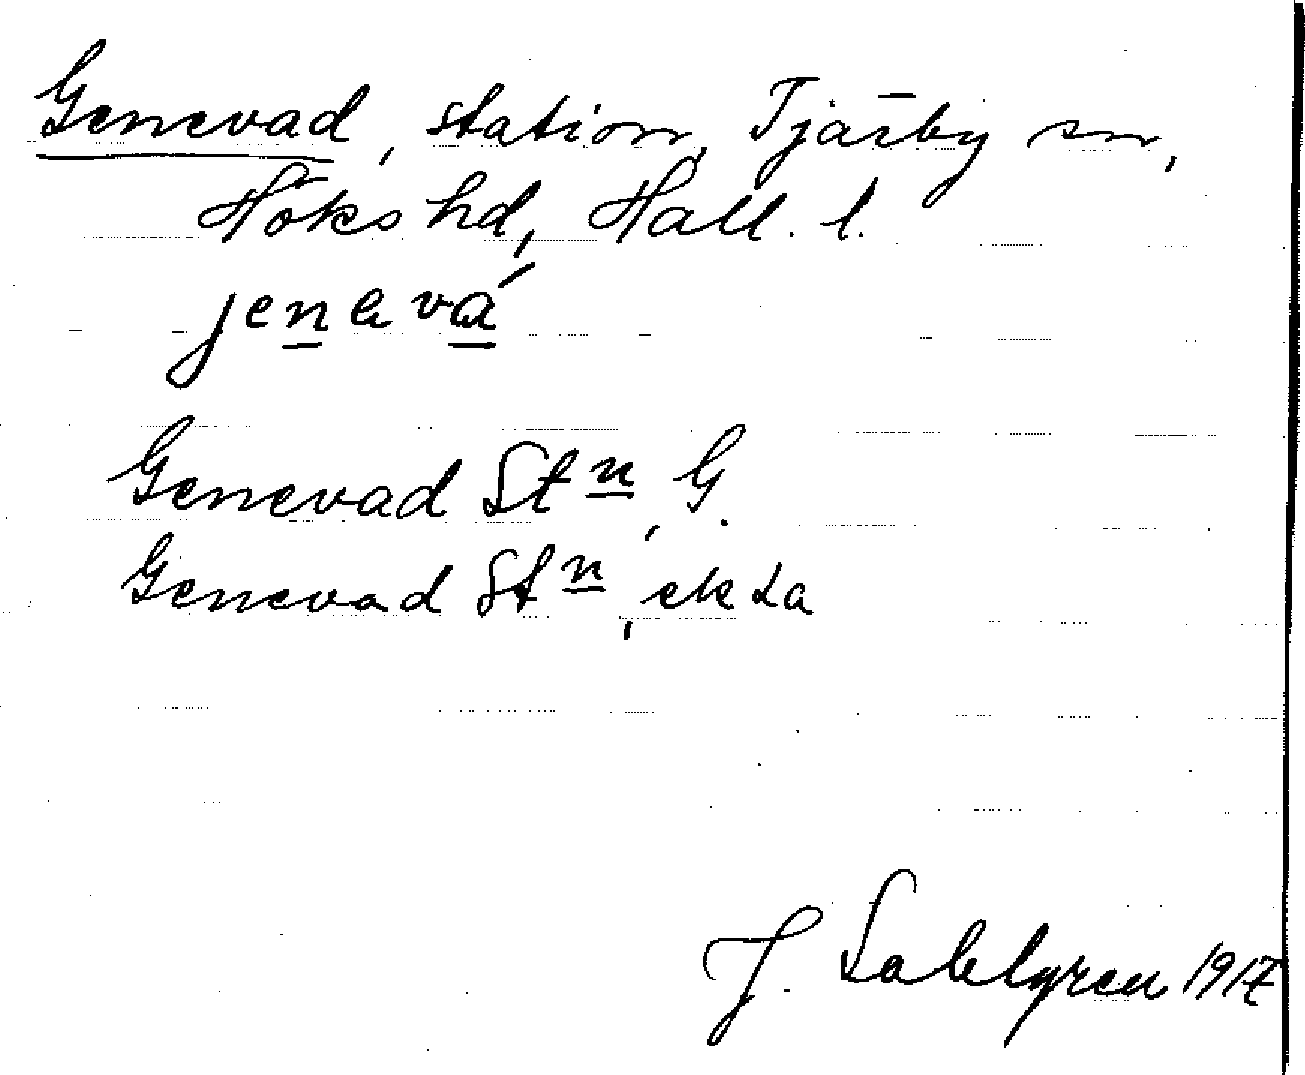 Genevad, station, Tjärby sn,
Höks hd, Hall. l.
jenevá
Genevad Stn, G.
Genevad Stn, ek ka
J. Sahlgren 1917